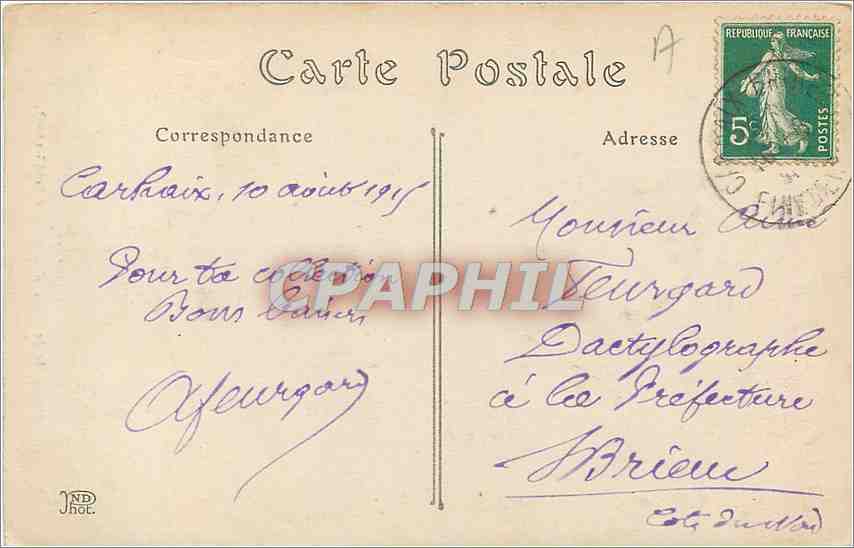 A
REPUBLIQUE FRANÇAISE
5c
POSTES
Carte Postale
Correspondance
Adresse
Carhaix, 10 août 1915
Pour ta collection
Bons baisers
AFeurgard
Monsieur Aimé
Feurgard
Dactylographe
à la Préfecture
St Brieuc
Côtes du Nord
CPAPHIL
ND
Phot.